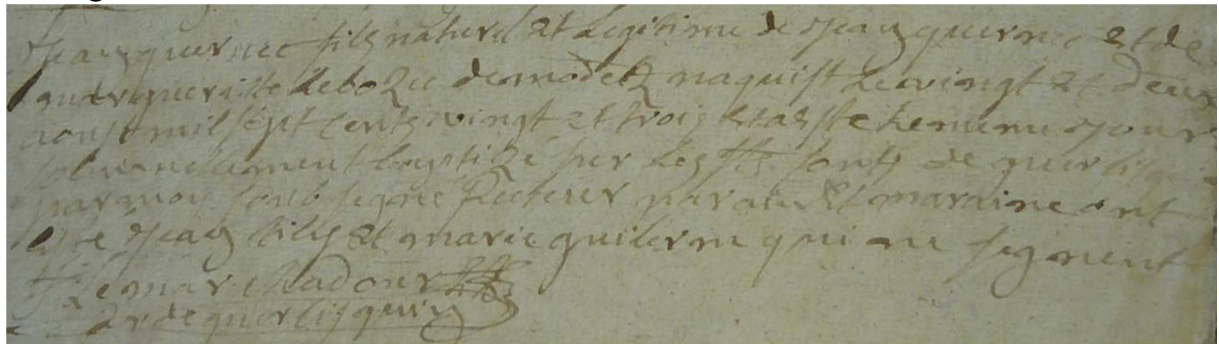 Jean quernec fils naturel et legitime de Jean quernec et de
margueritte lebozec demodetz naquist le vingt et deux
aoust mil sept cents vingt et trois et at este le meme jour
solemnelement baptizé sur les fonts de querlisqui
par moy soub signé Recteur parain et maraine ont
esté Jean lilis et marie guilerm qui ne signent
f: Lemarchadour
dr de querlisquin